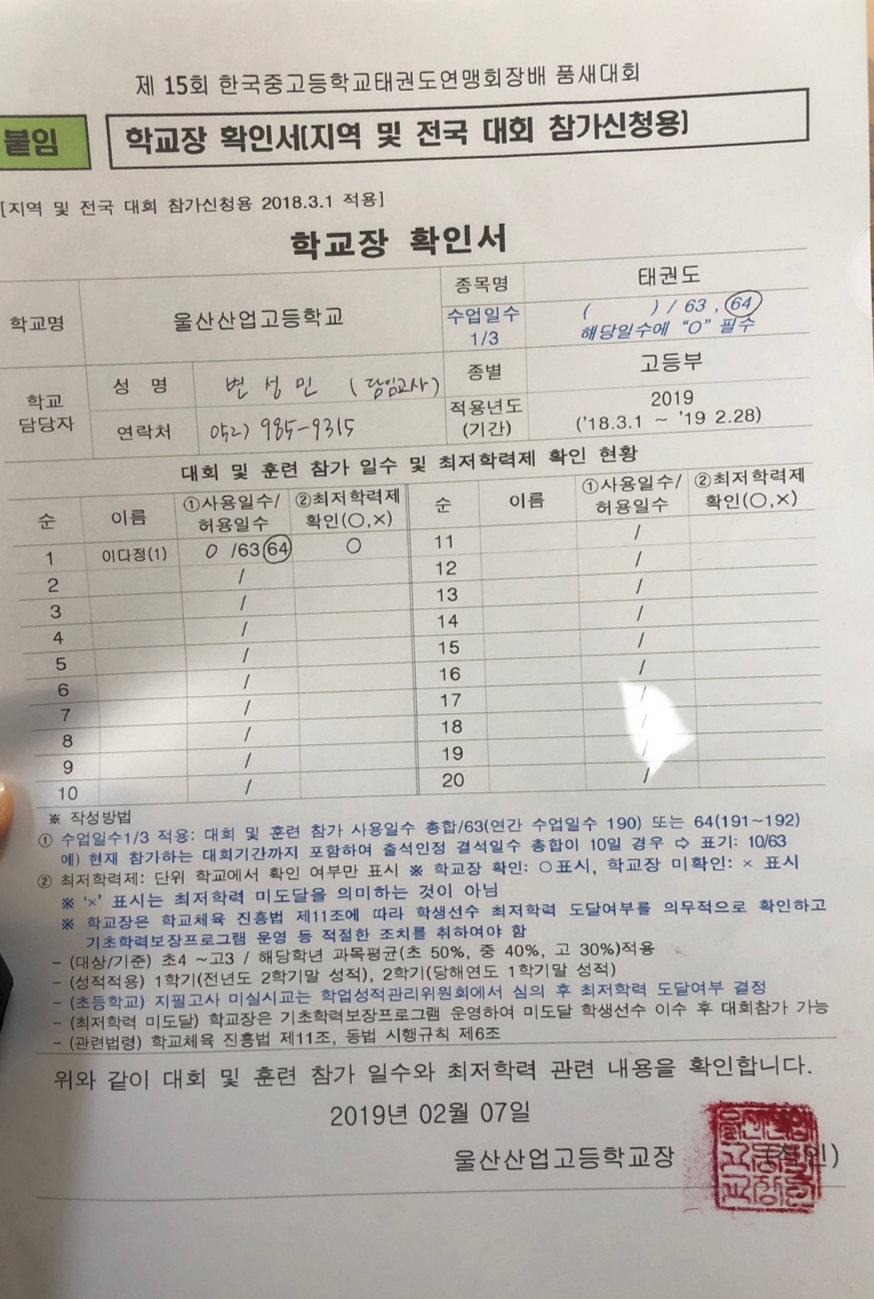 제 15회 한국중고등학교태권도연맹회장배 품새대회
붙임
학교장 확인서(지역 및 전국 대회 참가신청용)
[지역 및 전국 대회 참가신청용 2018.3.1 적용]
학교장 확인서
학교명 울산산업고등학교 종목명 태권도
수업일수 1/3 ( ) / 63 , 64
해당일수에 “O” 필수
학교 담당자 성 명 변성민 (담임교사) 종별 고등부
연락처 052) 985-9315 적용년도 (기간) 2019
('18.3.1 ~ '19 2.28)
대회 및 훈련 참가 일수 및 최저학력제 확인 현황
순 이름 ①사용일수/허용일수 ②최저학력제 확인(○,×) 순 이름 ①사용일수/허용일수 ②최저학력제 확인(○,×)
1 이다정(1) 0 /63 64 ○ 11 /
2 / 12 /
3 / 13 /
4 / 14 /
5 / 15 /
6 / 16 /
7 / 17 /
8 / 18 /
9 / 19 /
10 / 20 /
※ 작성방법
① 수업일수1/3 적용: 대회 및 훈련 참가 사용일수 총합/63(연간 수업일수 190) 또는 64(191~192)
예) 현재 참가하는 대회기간까지 포함하여 출석인정 결석일수 총합이 10일 경우 ⇨ 표기: 10/63
② 최저학력제: 단위 학교에서 확인 여부만 표시 ※ 학교장 확인: ○표시, 학교장 미확인: × 표시
※ ‘×’ 표시는 최저학력 미도달을 의미하는 것이 아님
※ 학교장은 학교체육 진흥법 제11조에 따라 학생선수 최저학력 도달여부를 의무적으로 확인하고
기초학력보장프로그램 운영 등 적절한 조치를 취하여야 함
- (대상/기준) 초4 ~고3 / 해당학년 과목평균(초 50%, 중 40%, 고 30%)적용
- (성적적용) 1학기(전년도 2학기말 성적), 2학기(당해연도 1학기말 성적)
- (초등학교) 지필고사 미실시교는 학업성적관리위원회에서 심의 후 최저학력 도달여부 결정
- (최저학력 미도달) 학교장은 기초학력보장프로그램 운영하여 미도달 학생선수 이수 후 대회참가 가능
- (관련법령) 학교체육 진흥법 제11조, 동법 시행규칙 제6조
위와 같이 대회 및 훈련 참가 일수와 최저학력 관련 내용을 확인합니다.
2019년 02월 07일
울산산업고등학교장 (직인)